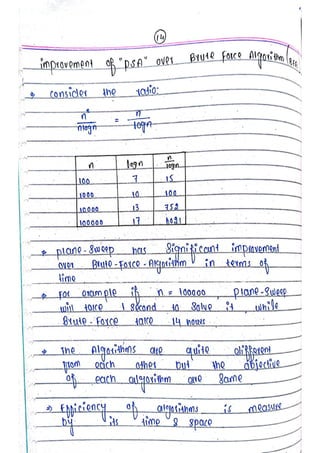 14
improvement of "PSA" over Brute Force Algorithm
→ consider the ratio:
n² / nlogn = n / logn
n logn n/logn
100 7 15
1000 10 100
10000 13 752
100000 17 6021
→ plane-sweep has significant improvement
over Brute-Force-Algorithm in terms of
time
→ For example if n = 100000, plane-sweep
will take 1 second to solve it, while
Brute-Force take 14 hours
→ The Algorithms are quite different
from each other but the objective
of each algorithm are same
→ Efficiency of algorithms is measure
by its time & space